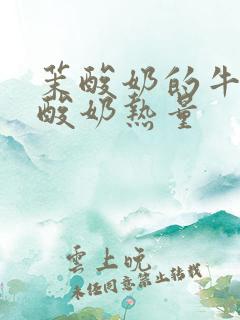 茉酸奶的牛
酸奶热量
雲上晚
未经同意禁止转载